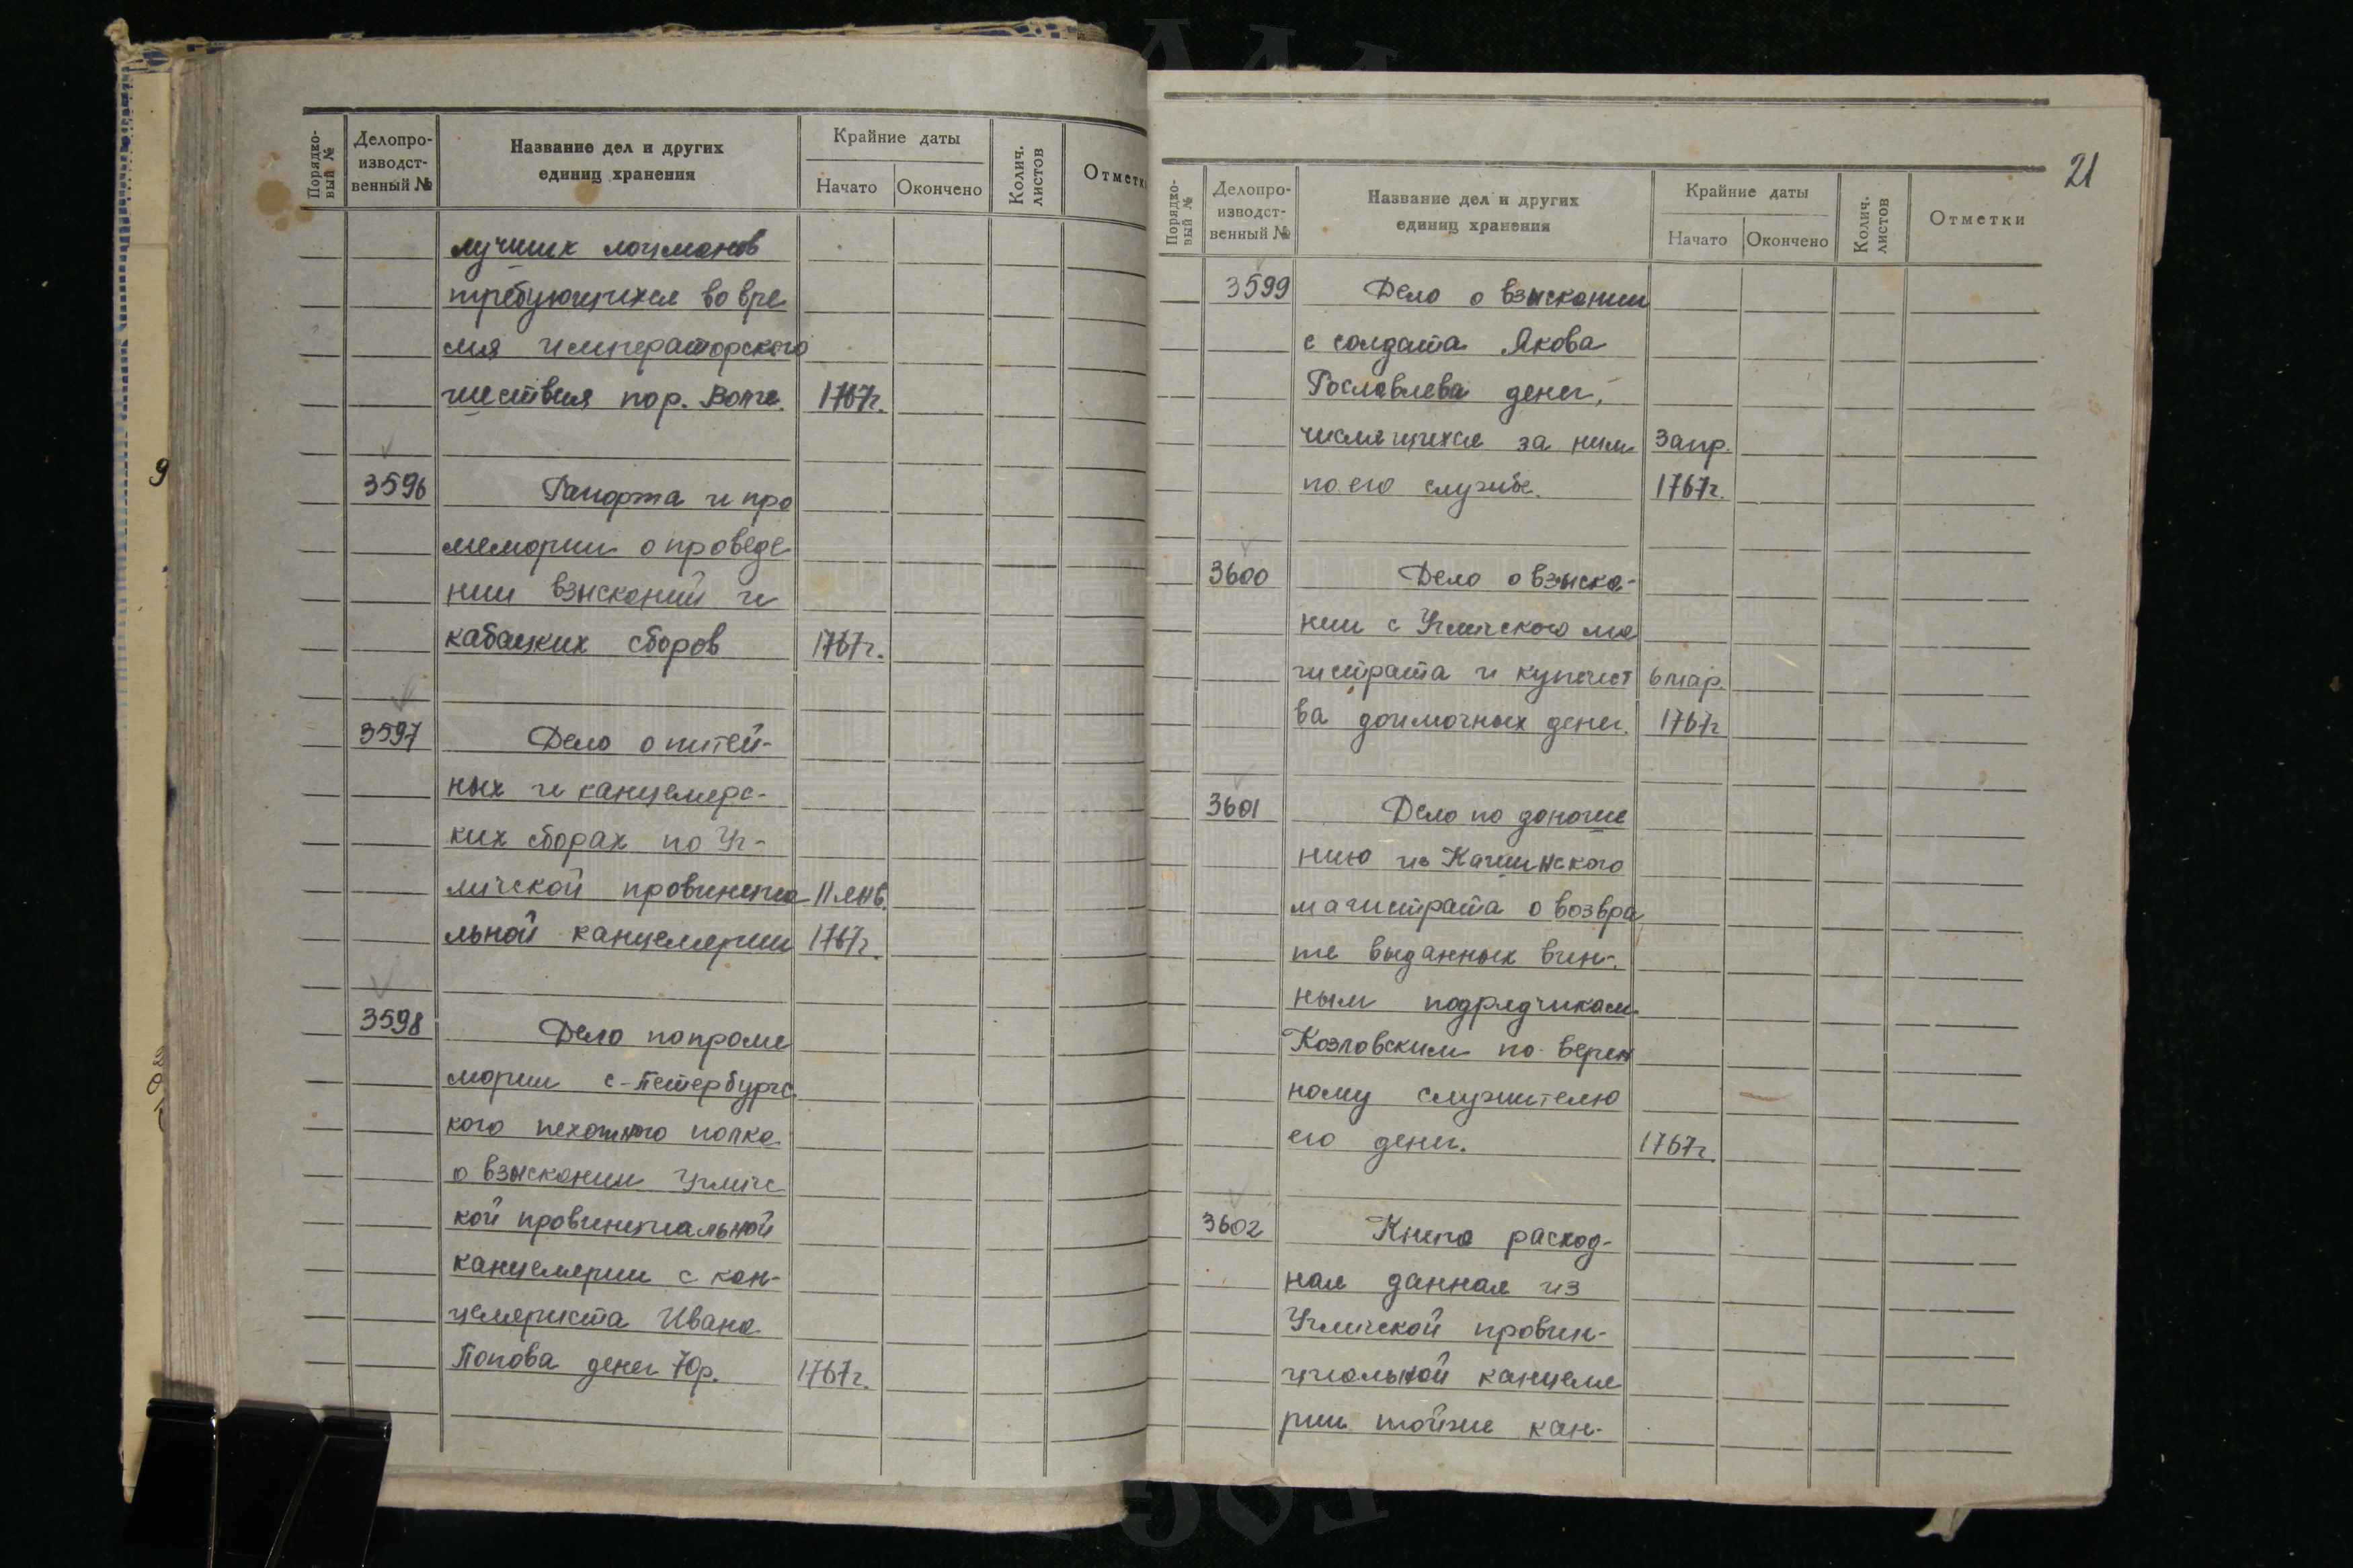 Порядко-
вый №
Делопро-
изводст-
венный №
Название дел и других
единиц хранения
Крайние даты
Начато
Окончено
Колич.
листов
Отметк
лучших лоцманов
требующихся во вре
мя императорского
шествия по р. Волге. 1767г.
3596 Рапорта и про
мемории о проведе
нии взысканий и
кабацких сборов 1767г.
3597 Дело о питей-
ных и канцелярс-
ких сборах по Уг-
личской провинциа 11 янв.
льной канцелярии 1767г.
3598 Дело по проме
мории с-Петербургс
кого пехотного полка
о взыскании Угличс
кой провинциальной
канцелярии с кан-
целяриста Ивана
Попова денег 70р. 1767г.
9
21
Порядко-
вый №
Делопро-
изводст-
венный №
Название дел и других
единиц хранения
Крайние даты
Начато
Окончено
Колич.
листов
Отметки
3599 Дело о взыскании
с солдата Якова
Рославлева денег,
числящихся за ним 3 апр.
по его службе. 1767г.
3600 Дело о взыска-
нии с Угличского ма
гистрата и купечест 6 мар.
ва доимочных денег. 1767г
3601 Дело по доноше
нию из Кашинского
магистрата о возвра
те выданных вин-
ным подрядчикам
Козловским по верен
ному служителю
его денег. 1767г.
3602 Книга расход-
ная данная из
Угличской провин-
циальной канцеля
рии тойже кан-